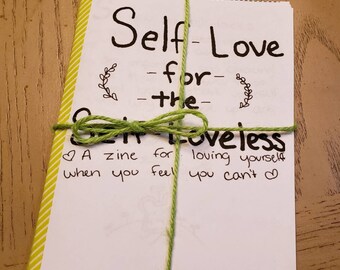 Self-Love
-for-
-the-
Self-Loveless
♡ A zine for loving yourself
when you feel you can't ♡